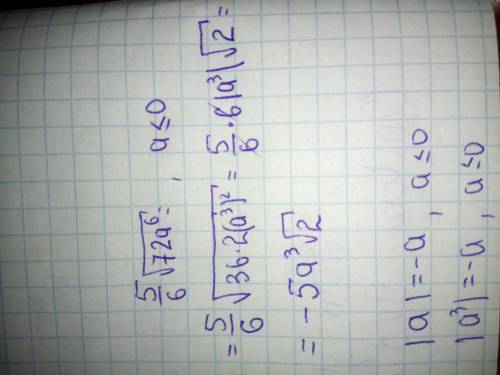 5/6 √72a⁶ = , a ≤ 0
= 5/6 √36·2(a³)² = 5/6 · 6|a³|√2 =
= -5a³√2
|a| = -a , a ≤ 0
|a³| = -a , a ≤ 0